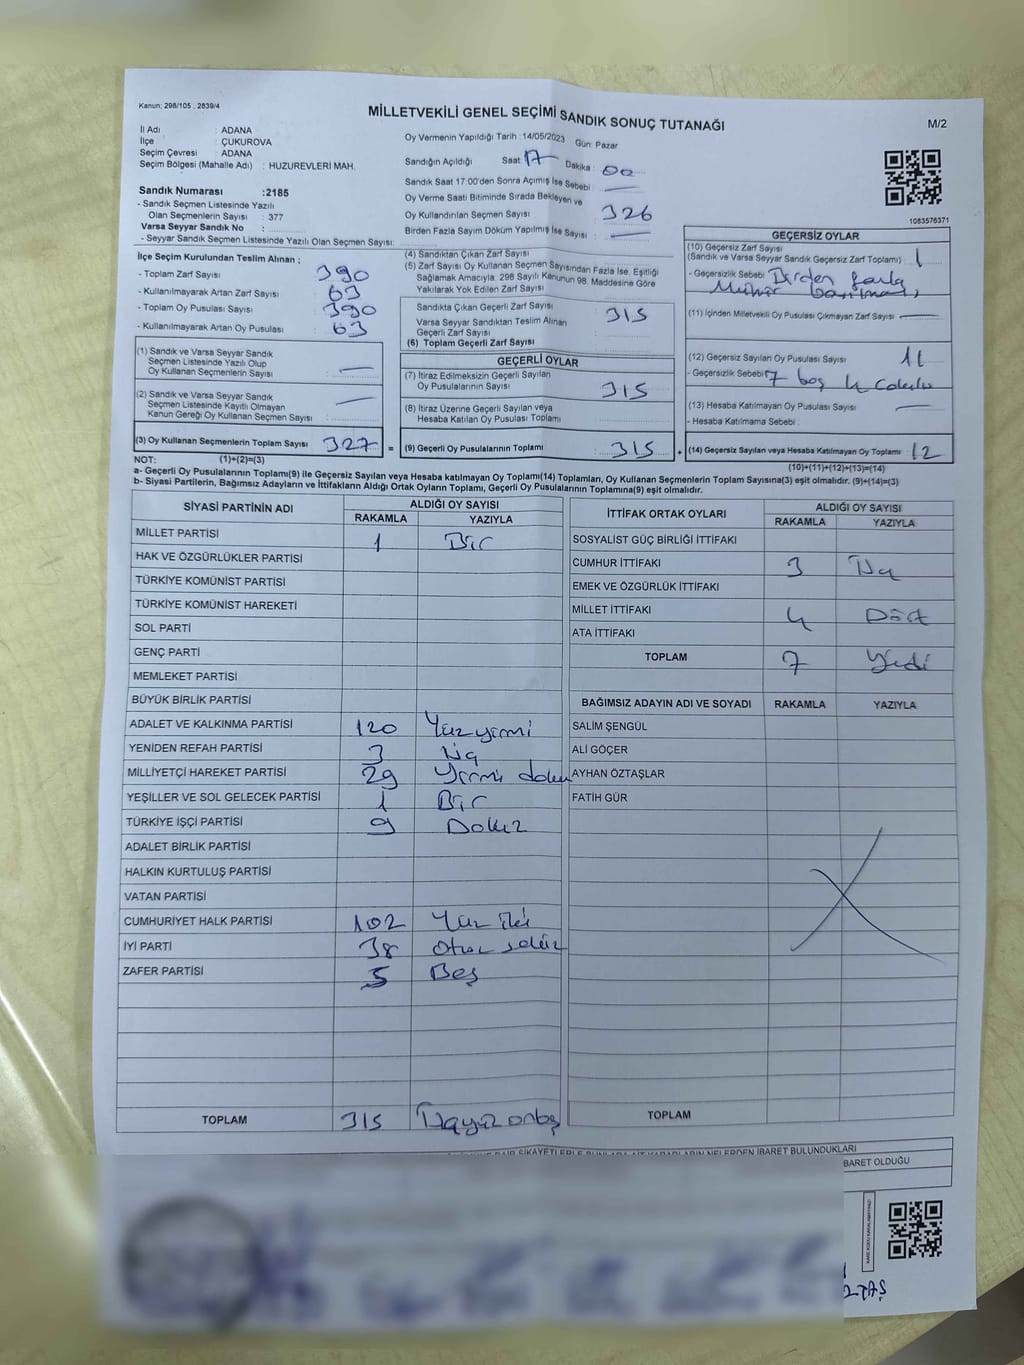 Kanun; 298/105 , 2839/4
MİLLETVEKİLİ GENEL SEÇİMİ SANDIK SONUÇ TUTANAĞI
M/2
İl Adı : ADANA
İlçe : ÇUKUROVA
Seçim Çevresi : ADANA
Seçim Bölgesi (Mahalle Adı) : HUZUREVLERİ MAH.
Sandık Numarası :2185
- Sandık Seçmen Listesinde Yazılı
Olan Seçmenlerin Sayısı : 377
Varsa Seyyar Sandık No :
- Seyyar Sandık Seçmen Listesinde Yazılı Olan Seçmen Sayısı:
Oy Vermenin Yapıldığı Tarih :14/05/2023 Gün: Pazar
Sandığın Açıldığı Saat 17 Dakika : 00
Sandık Saat 17:00'den Sonra Açımış İse Sebebi : —
Oy Verme Saati Bitiminde Sırada Bekleyen ve
Oy Kullandırılan Seçmen Sayısı : 326
Birden Fazla Sayım Döküm Yapılmış İse Sayısı : —
1083576371
İlçe Seçim Kurulundan Teslim Alınan ;
- Toplam Zarf Sayısı : 390
- Kullanılmayarak Artan Zarf Sayısı : 63
- Toplam Oy Pusulası Sayısı : 390
- Kullanılmayarak Artan Oy Pusulası : 63
(1) Sandık ve Varsa Seyyar Sandık
Seçmen Listesinde Yazılı Olup
Oy Kullanan Seçmenlerin Sayısı : —
(2) Sandık ve Varsa Seyyar Sandık
Seçmen Listesinde Kayıtlı Olmayan
Kanun Gereği Oy Kullanan Seçmen Sayısı : —
(3) Oy Kullanan Seçmenlerin Toplam Sayısı : 327 =
(4) Sandıktan Çıkan Zarf Sayısı
(5) Zarf Sayısı Oy Kullanan Seçmen Sayısından Fazla İse, Eşitliği
Sağlamak Amacıyla, 298 Sayılı Kanunun 98. Maddesine Göre
Yakılarak Yok Edilen Zarf Sayısı :
Sandıkta Çıkan Geçerli Zarf Sayısı : 315
Varsa Seyyar Sandıktan Teslim Alınan
Geçerli Zarf Sayısı :
(6) Toplam Geçerli Zarf Sayısı :
GEÇERLİ OYLAR
(7) İtiraz Edilmeksizin Geçerli Sayılan
Oy Pusulalarının Sayısı : 315
(8) İtiraz Üzerine Geçerli Sayılan veya
Hesaba Katılan Oy Pusulası Toplamı :
(9) Geçerli Oy Pusulalarının Toplamı : 315 +
GEÇERSİZ OYLAR
(10) Geçersiz Zarf Sayısı
(Sandık ve Varsa Seyyar Sandık Geçersiz Zarf Toplamı) : 1
- Geçersizlik Sebebi : Birden fazla
Mühür basılması
(11) İçinden Milletvekili Oy Pusulası Çıkmayan Zarf Sayısı : —
(12) Geçersiz Sayılan Oy Pusulası Sayısı : 11
- Geçersizlik Sebebi : 7 boş 4
(13) Hesaba Katılmayan Oy Pusulası Sayısı : —
- Hesaba Katılmama Sebebi :
(14) Geçersiz Sayılan veya Hesaba Katılmayan Oy Toplamı : 12
NOT: (1)+(2)=(3)
(10)+(11)+(12)+(13)=(14)
a- Geçerli Oy Pusulalarının Toplamı(9) ile Geçersiz Sayılan veya Hesaba katılmayan Oy Toplamı(14) Toplamları, Oy Kullanan Seçmenlerin Toplam Sayısına(3) eşit olmalıdır. (9)+(14)=(3)
b- Siyasi Partilerin, Bağımsız Adayların ve İttifakların Aldığı Ortak Oyların Toplamı, Geçerli Oy Pusulalarının Toplamına(9) eşit olmalıdır.
SİYASİ PARTİNİN ADI ALDIĞI OY SAYISI
RAKAMLA YAZIYLA
MİLLET PARTİSİ 1 Bir
HAK VE ÖZGÜRLÜKLER PARTİSİ
TÜRKİYE KOMÜNİST PARTİSİ
TÜRKİYE KOMÜNİST HAREKETİ
SOL PARTİ
GENÇ PARTİ
MEMLEKET PARTİSİ
BÜYÜK BİRLİK PARTİSİ
ADALET VE KALKINMA PARTİSİ 120 Yüzyirmi
YENİDEN REFAH PARTİSİ 3 Üç
MİLLİYETÇİ HAREKET PARTİSİ 29 Yirmi dokuz
YEŞİLLER VE SOL GELECEK PARTİSİ 1 Bir
TÜRKİYE İŞÇİ PARTİSİ 9 Dokuz
ADALET BİRLİK PARTİSİ
HALKIN KURTULUŞ PARTİSİ
VATAN PARTİSİ
CUMHURİYET HALK PARTİSİ 102 Yüz iki
İYİ PARTİ 38 Otuz sekiz
ZAFER PARTİSİ 5 Beş
TOPLAM 315 Üçyüz onbeş
İTTİFAK ORTAK OYLARI ALDIĞI OY SAYISI
RAKAMLA YAZIYLA
SOSYALİST GÜÇ BİRLİĞİ İTTİFAKI
CUMHUR İTTİFAKI 3 Üç
EMEK VE ÖZGÜRLÜK İTTİFAKI
MİLLET İTTİFAKI 4 Dört
ATA İTTİFAKI
TOPLAM 7 Yedi
BAĞIMSIZ ADAYIN ADI VE SOYADI RAKAMLA YAZIYLA
SALİM ŞENGÜL
ALİ GÖÇER
AYHAN ÖZTAŞLAR
FATİH GÜR
TOPLAM
NELERDEN İBARET BULUNDUKLARI
İBARET OLDUĞU